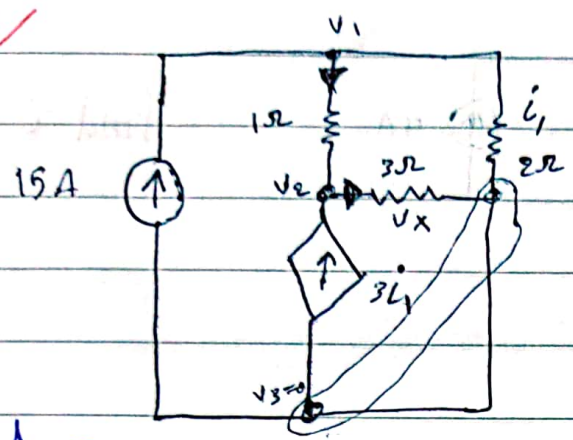 V1
1Ω
i1
3Ω
2Ω
15 A
V2
Vx
3i1
V3=0